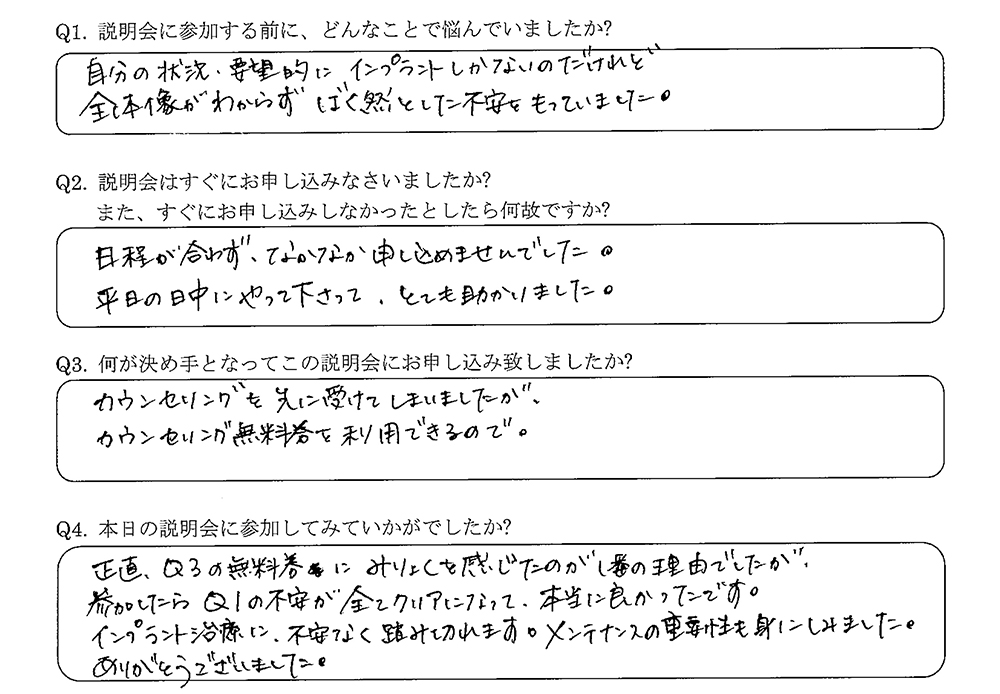 Q1. 説明会に参加する前に、どんなことで悩んでいましたか?
自分の状況・要望的に インプラントしかないのだけれど
全体像がわからず ばく然とした不安をもっていました。
Q2. 説明会はすぐにお申し込みなさいましたか?
また、すぐにお申し込みしなかったとしたら何故ですか?
日程が合わず、なかなか申し込めませんでした。
平日の日中にやって下さって、とても助かりました。
Q3. 何が決め手となってこの説明会にお申し込み致しましたか?
カウンセリングを先に受けてしまいましたが、
カウンセリング無料券を利用できるので。
Q4. 本日の説明会に参加してみていかがでしたか?
正直、Q3の無料券に みりょくを感じたのが1番の理由でしたが、
参加したら Q1の不安が全てクリアになって、本当に良かったです。
インプラント治療に、不安なく踏み切れます。メンテナンスの重要性も身にしみました。
ありがとうございました。